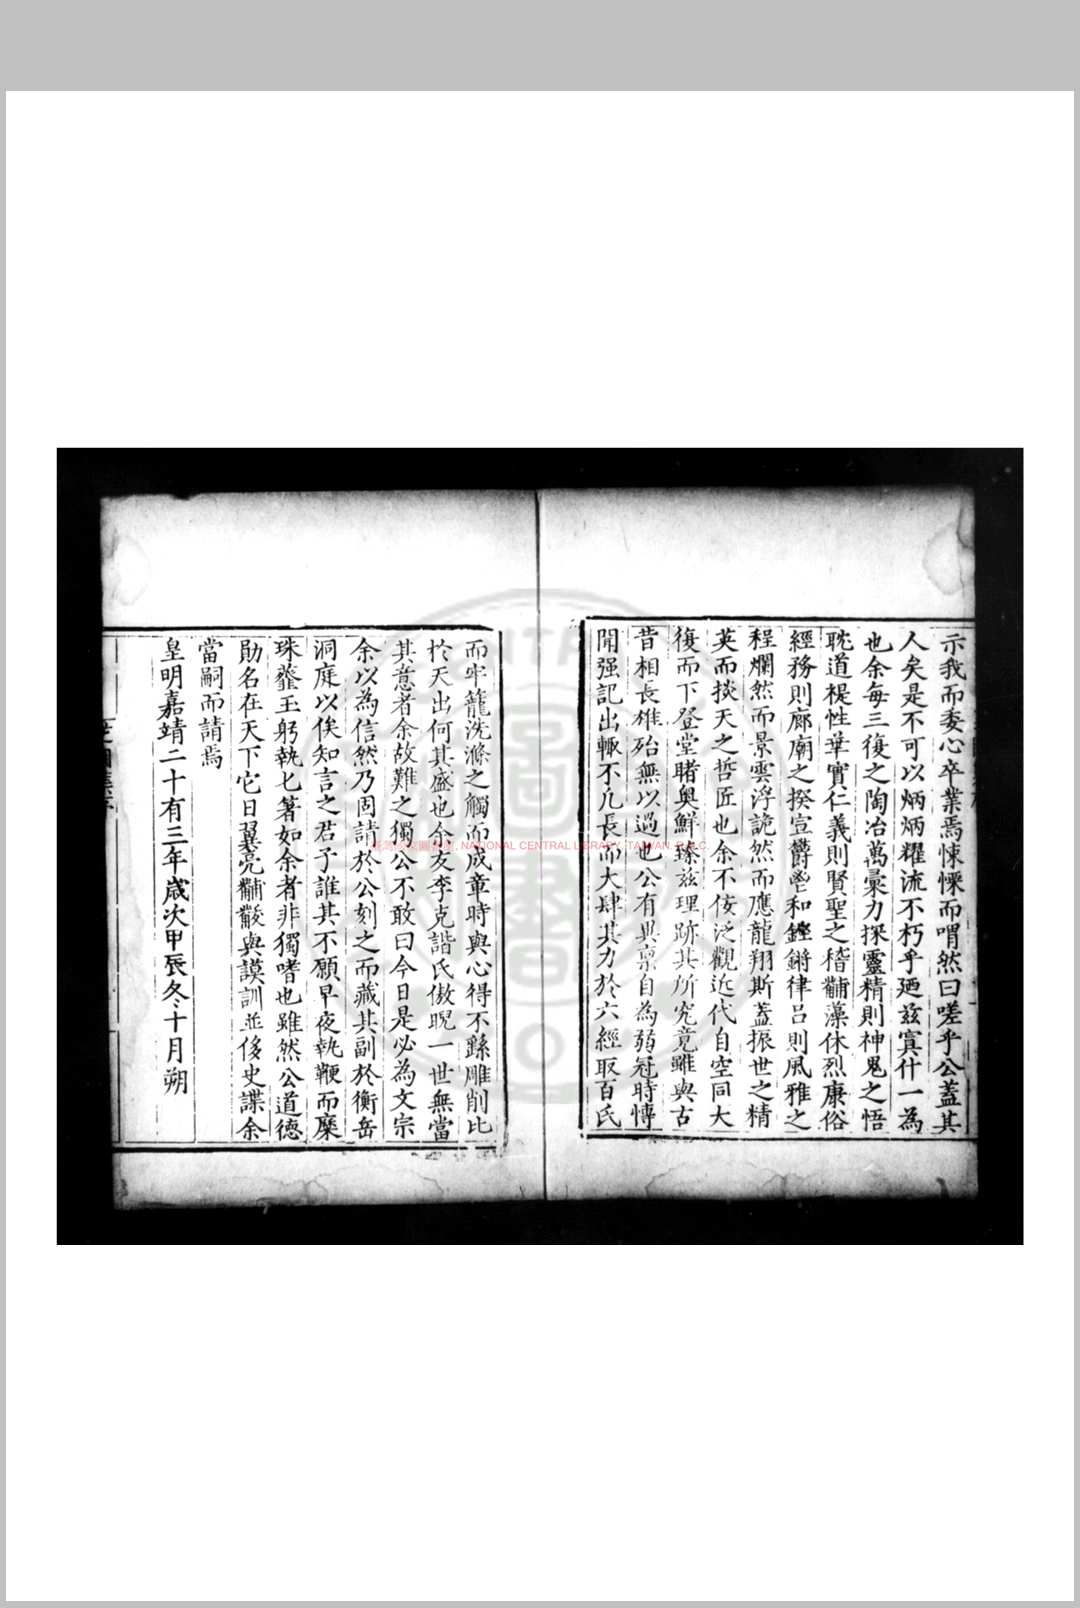 示我而委心卒業焉悚慄而喟然曰嗟乎公蓋其
人矣是不可以炳炳耀流不朽乎廼茲寘什一為
也余每三復之陶冶萬彙力探靈精則神鬼之悟
耽道禔性華實仁義則賢聖之稽黼藻休烈康俗
經務則廊廟之揆宣欝鬯和鏗鏘律呂則風雅之
程爛然而景雲浮詭然而應龍翔斯蓋振世之精
英而掞天之哲匠也余不佞泛觀近代自空同大
復而下登堂睹奧鮮臻茲理跡其所究竟雖與古
昔相長雄殆無以過也公有異禀自為弱冠時慱
聞强記出輙不凢長而大肆其力於六經取百氏
而牢籠洗滌之觸而成章時與心得不繇雕削比
於天出何其盛也余友李克諧氏傲睨一世無當
其意者余故難之獨公不敢曰今日是必為文宗
余以為信然乃固請於公刻之而藏其副於衡岳
洞庭以俟知言之君子誰其不願早夜執鞭而麋
珠虀玉躬執匕箸如余者非獨嗜也雖然公道德
勛名在天下它日翼亮黼黻與謨訓並侈史諜余
當嗣而請焉
皇明嘉靖二十有三年歲次甲辰冬十月朔
NATIONAL CENTRAL LIBRARY, TAIWAN, R.O.C.